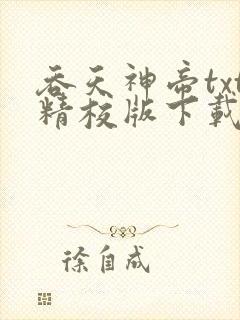 吞天神帝txt
精校版下载
徐自成